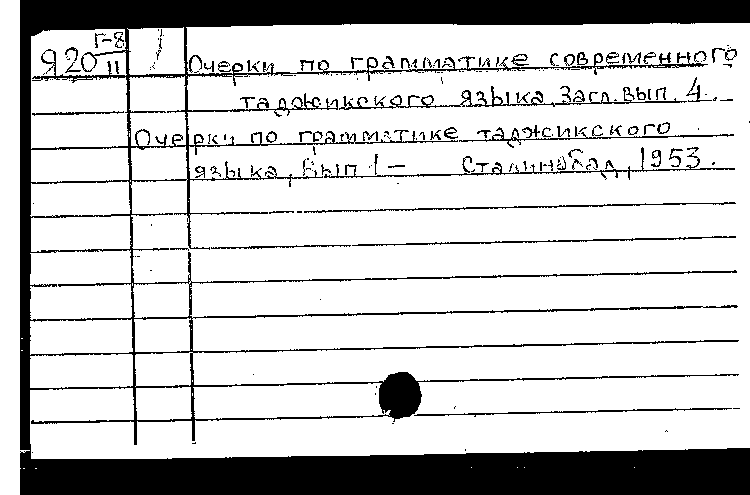 Г-8
Я20 II
Очерки по грамматике современного
таджикского языка, Загл. вып. 4.
Очерки по грамматике таджикского
языка, вып 1 — Сталинабад, 1953.